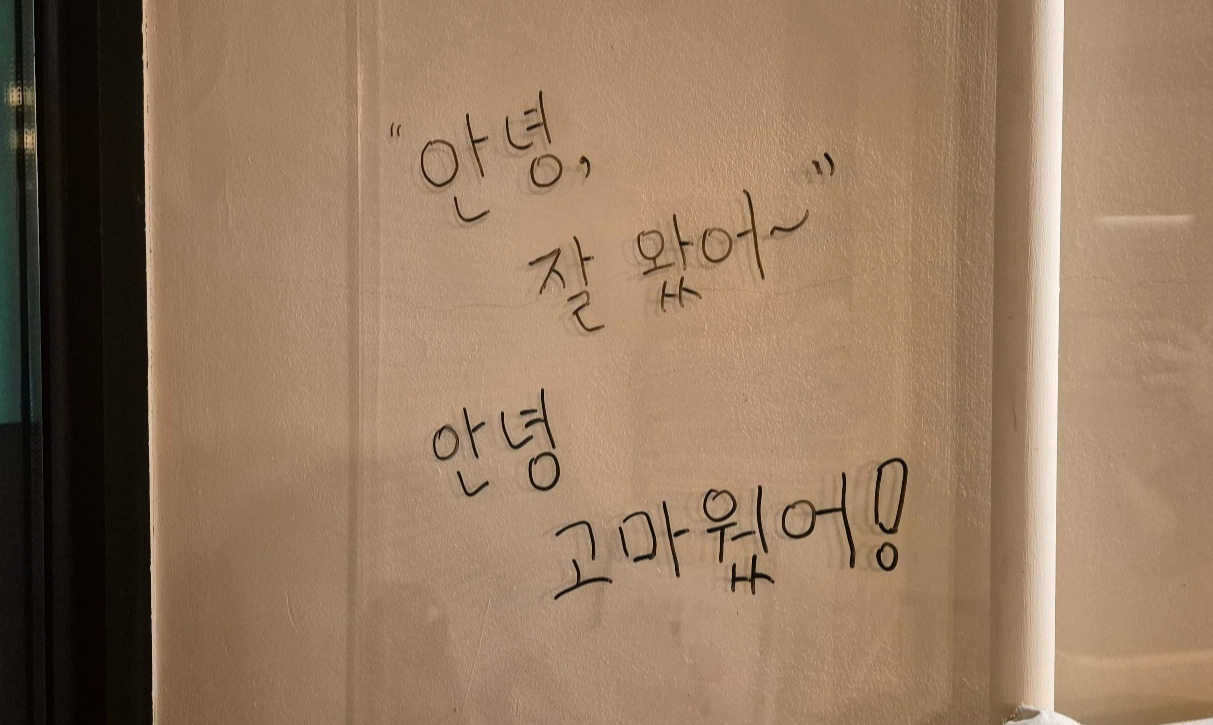 "안녕,
잘 왔어~"
안녕
고마웠어!